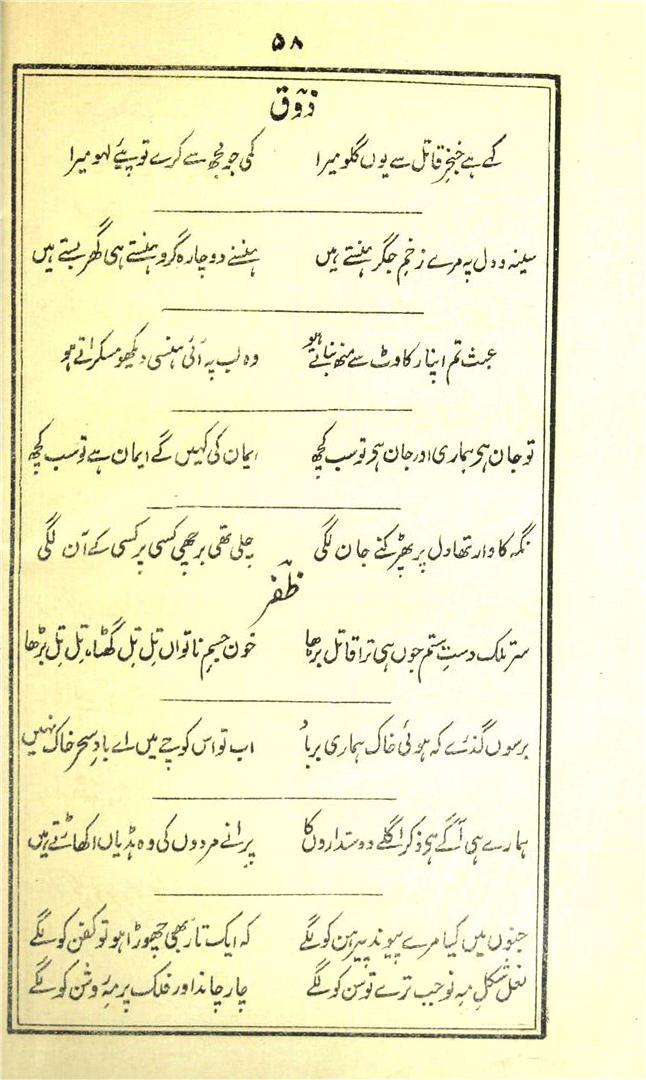 ۵۸
ذوق
کہے ہے خنجرِ قاتل سے یوں گلو میرا کمی جو مجھ سے کرے تو پیئے لہو میرا
سینہ و دل پہ مرے زخمِ جگر ہنستے ہیں ہنسنے دو چارہ گرو ہنستے ہی گھر بستے ہیں
عبث تم اپنا رکاوٹ سے منھ بناتے ہو وہ لب پہ آئی ہنسی دیکھو مسکراتے ہو
تو جان ہی ہماری اور جان ہی تو سب کچھ ایمان کی کہیں گے ایمان ہے تو سب کچھ
نگہ کا وار تھا دل پر پھڑکنے جان لگی چلی تھی برچھی کسی پر کسی کے آن لگی
ظفر
سر تلک دستِ ستم جوں ہی ترا قاتل بڑھا خون جسمِ ناتواں تِل تِل گھٹا، تِل تِل بڑھا
برسوں گذرے کہ ہوئی خاک ہماری برباد اب تو اس کوچے میں اے بادِ سحر خاک نہیں
ہمارے ہی آگے ہی ذکر اگلے دوستداروں کا پرانے مردوں کی وہ ہڈیاں اکھاڑتے ہیں
جنوں میں کیا مرے پیوند پیرہن کو لگے کہ ایک تار بھی چھوڑا ہو تو کفن کو لگے
نعل شکلِ مہِ نو جب ترے توسن کو لگے چار چاند اور فلک پر مہِ روشن کو لگے